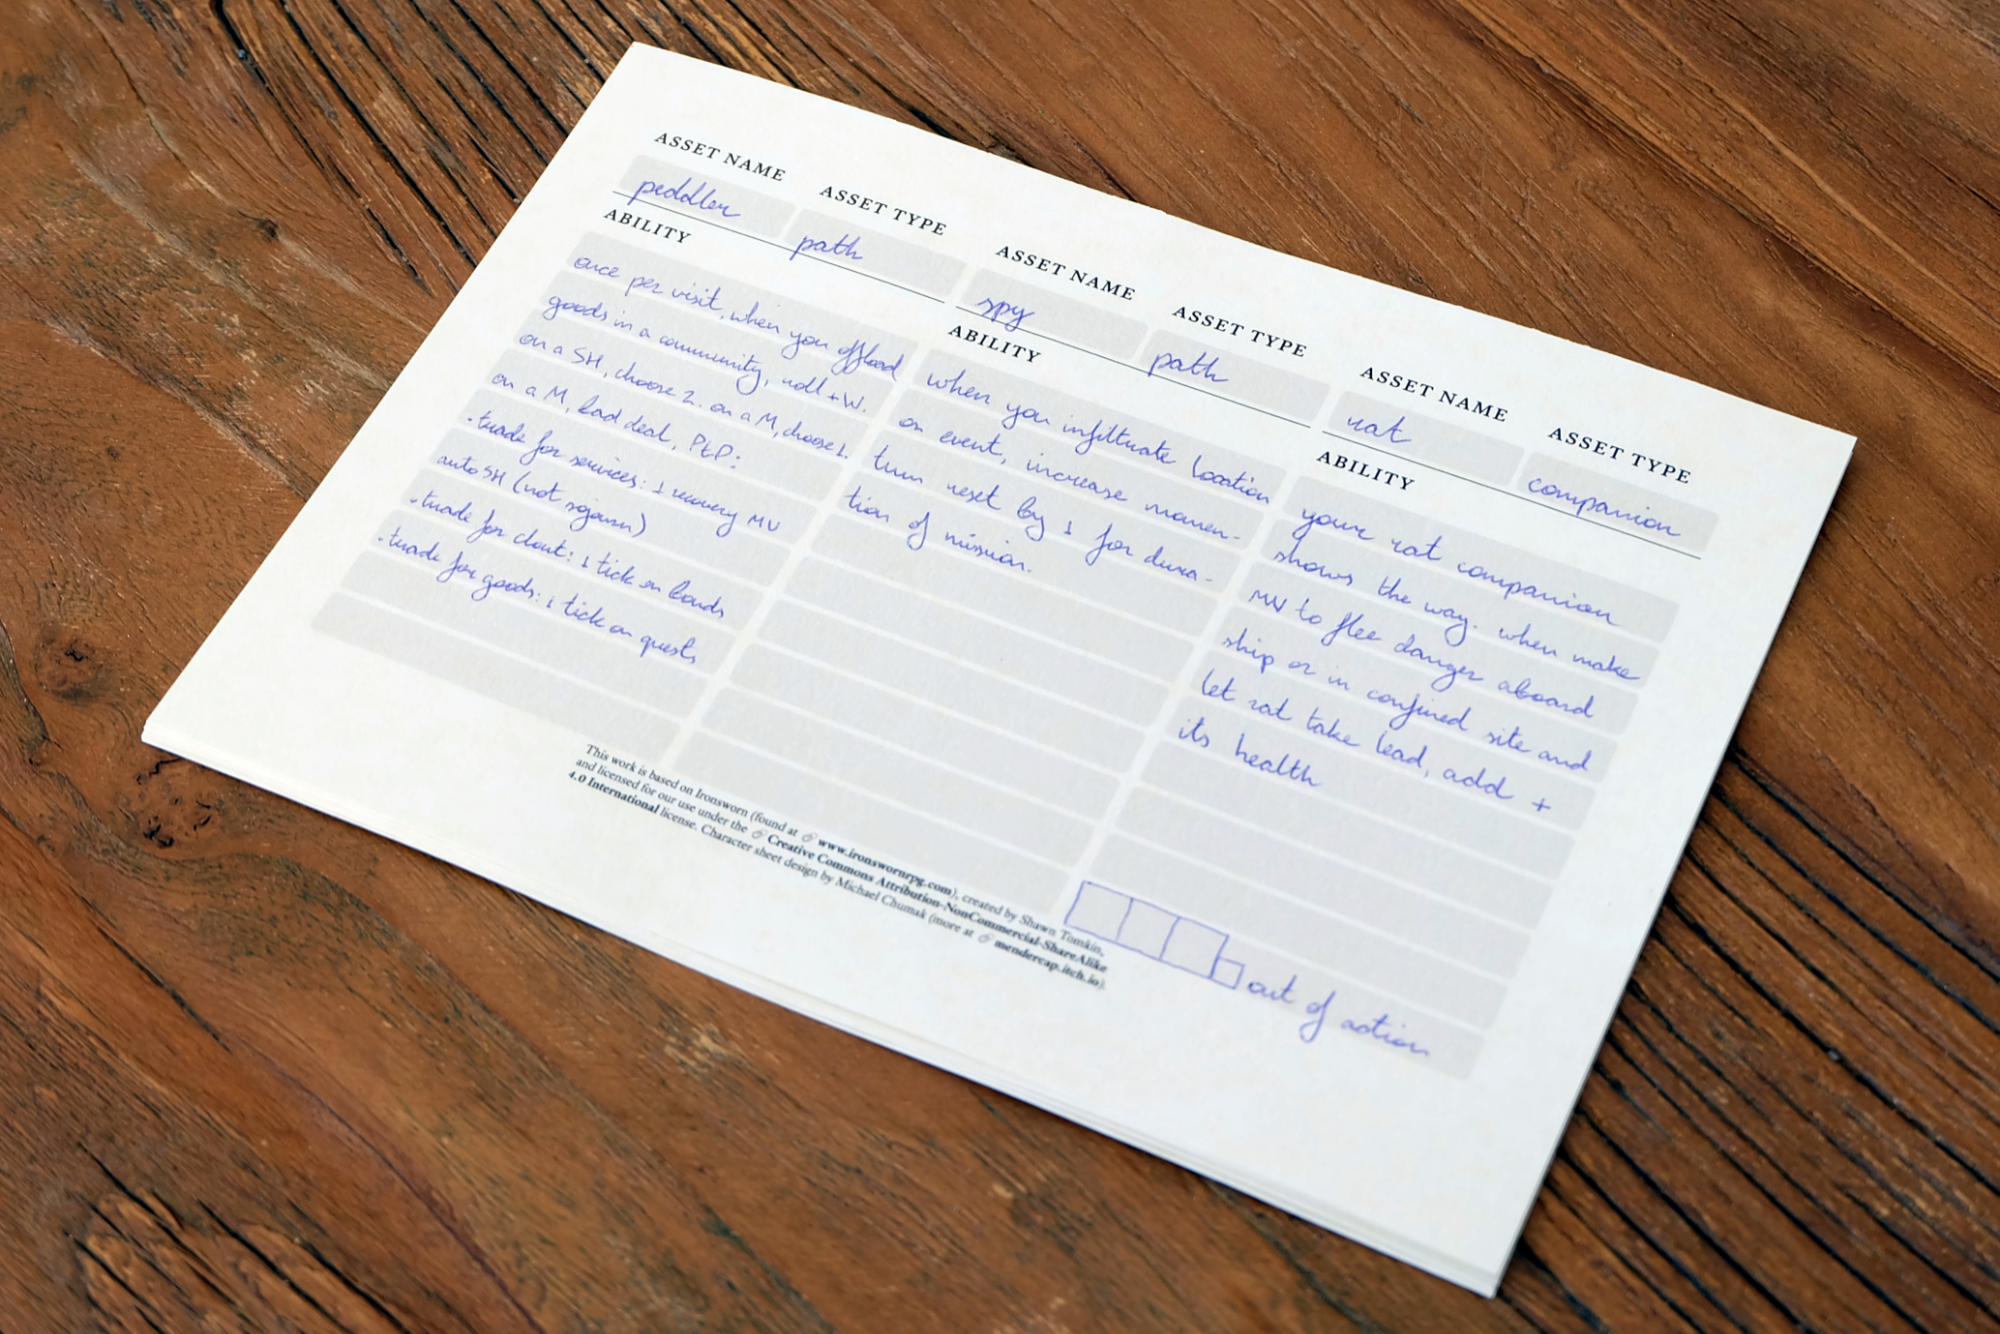 ASSET NAME
peddler
ASSET TYPE
path
ABILITY
once per visit, when you offload
goods in a community, roll +W.
on a SH, choose 2. on a M, choose 1.
on a M, bad deal, PtP:
. trade for services: 1 recovery MV
auto SH (not sojourn)
. trade for clout: 1 tick on bonds
. trade for goods: 1 tick on quests
ASSET NAME
spy
ASSET TYPE
path
ABILITY
when you infiltrate location
on event, increase momen-
tum reset by 1 for dura-
tion of mission.
ASSET NAME
rat
ASSET TYPE
companion
ABILITY
your rat companion
shows the way. when make
MV to flee danger aboard
ship or in confined site and
let rat take lead, add +
its health
out of action
This work is based on Ironsworn (found at www.ironswornrpg.com), created by Shawn Tomkin,
and licensed for our use under the Creative Commons Attribution-NonCommercial-ShareAlike
4.0 International license. Character sheet design by Michael Chumak (more at mendercap.itch.io).